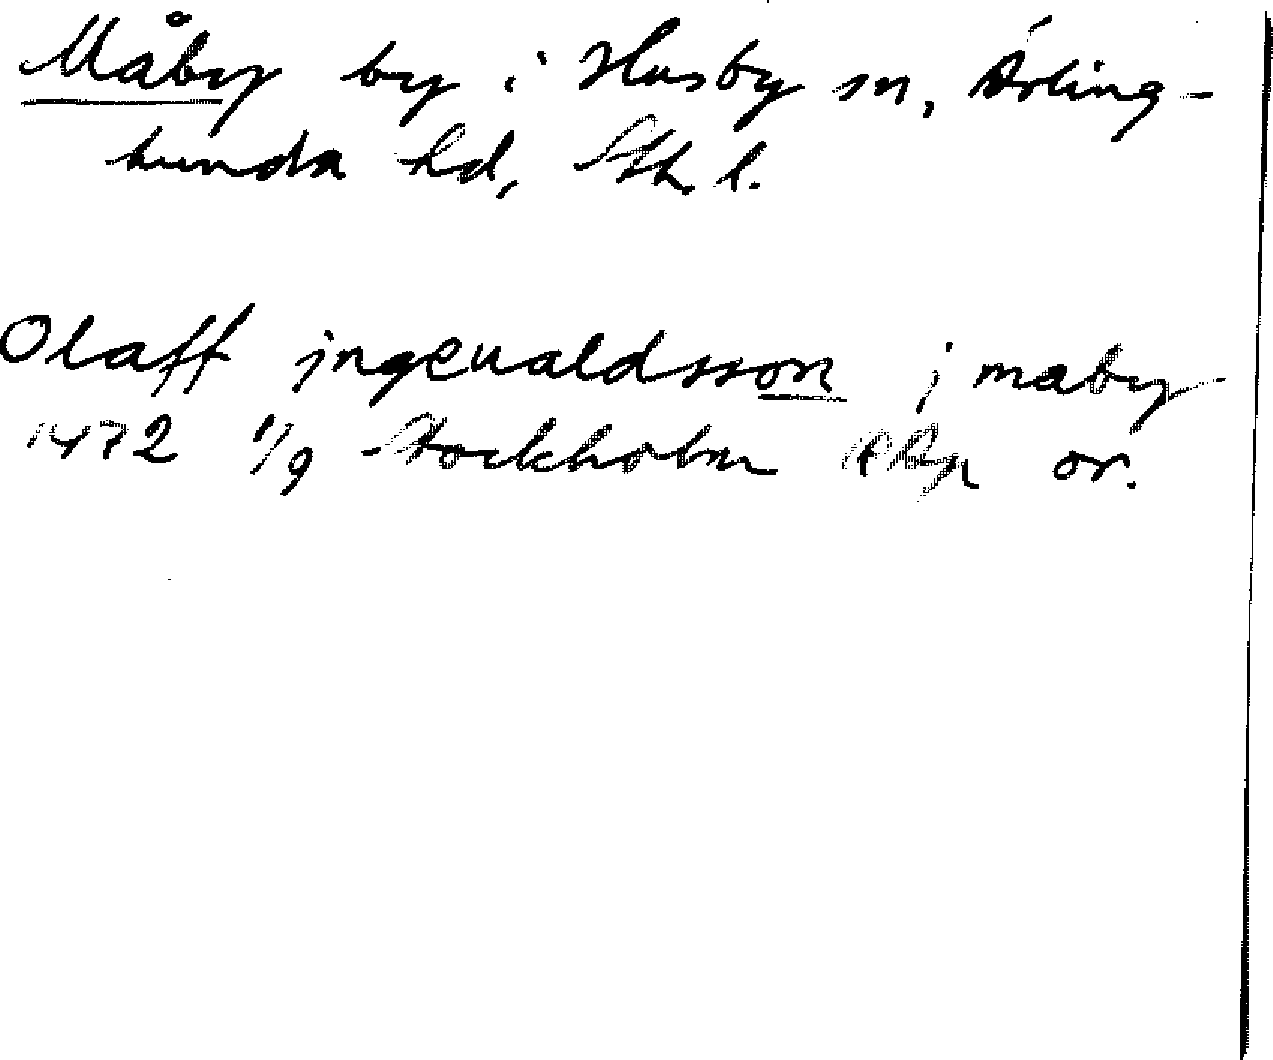 Måby by i Husby sn, Ärling-
hundra hd, Sth l.
Olaff jngeualdsson j maby
1472 1/9 Stockholm RApp or.